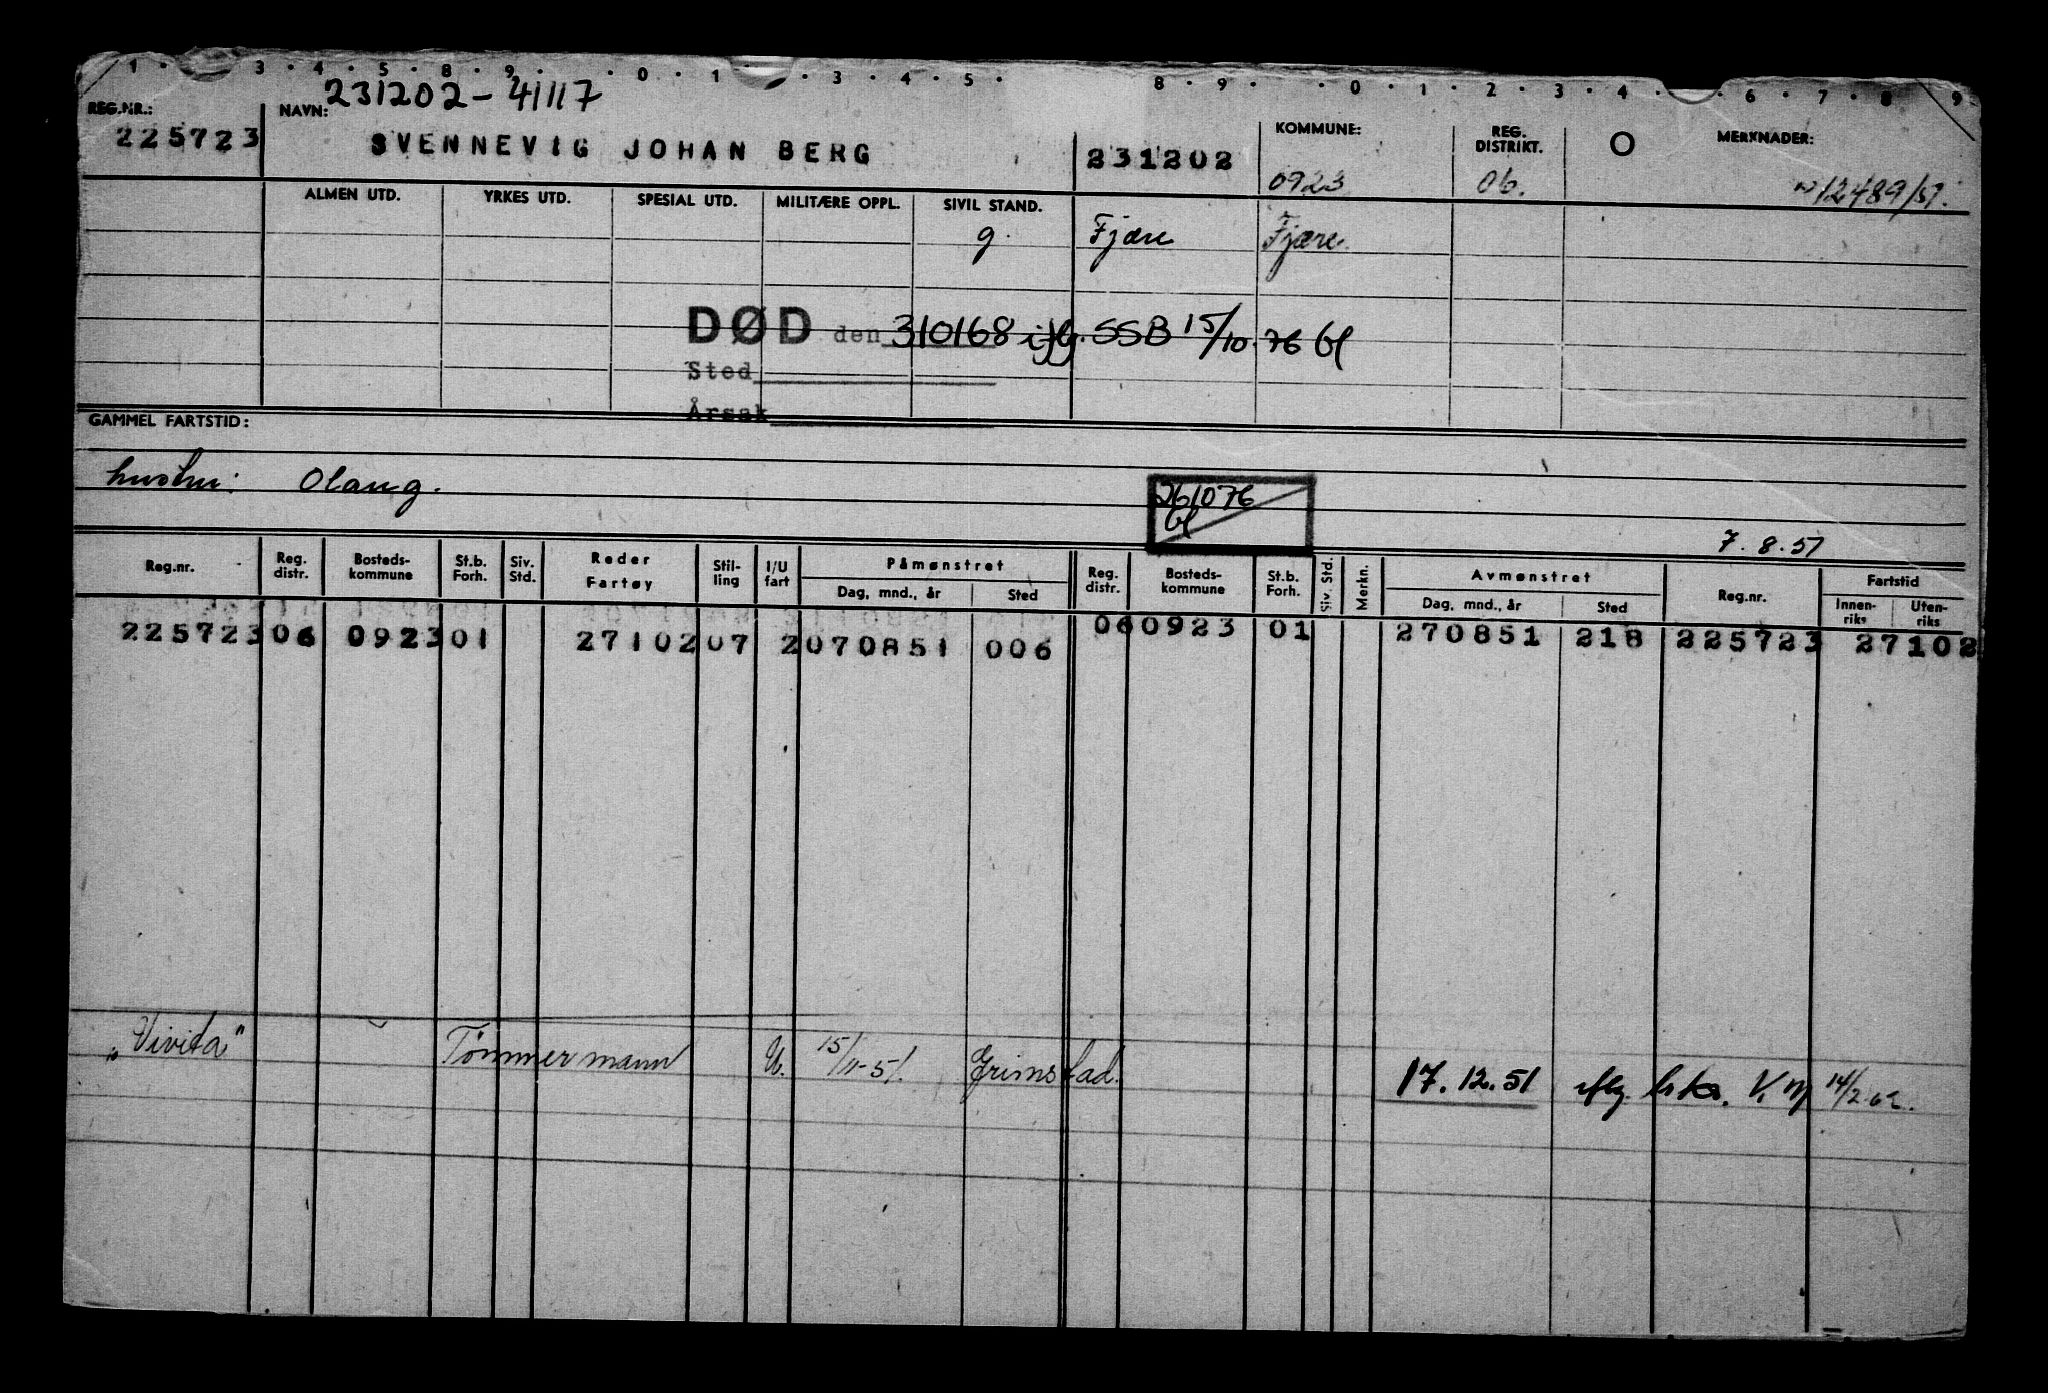 1 · 3 · 4 · 5 · 8 · 9 · 0 · 1 · 3 · 4 · 5 · 8 · 9 · 0 · 1 · 2 · 3 · 4 · 6 · 7 · 8 · 9
231202-41117
REG.NR.: NAVN: KOMMUNE: REG. DISTRIKT. O MERKNADER:
225723 SVENNEVIG JOHAN BERG 231202 0923 06. 12489/51.
ALMEN UTD. YRKES UTD. SPESIAL UTD. MILITÆRE OPPL. SIVIL STAND.
g. Fjære Fjære
DØD den 310168 iflg. SSB 15/10.76 bl
Sted
Årsak
GAMMEL FARTSTID:
hustru: Olaug.
261076
bl
7.8.51
Reg.nr. Reg. distr. Bosteds-kommune St.b. Forh. Siv. Std. Reder Fartøy Stil-ling I/U fart Påmønstret Dag, mnd., år Sted Reg. distr. Bosteds-kommune St.b. Forh. Siv. Std. Merkn. Avmønstret Dag, mnd., år Sted Reg.nr. Fartstid Innen-riks Uten-riks
225723 06 0923 01 27102 07 2 070851 006 06 0923 01 270851 218 225723 27102
"Vivita" Tømmermann U. 15/11-51. Grimstad. 17.12.51 iflg. 14/2.62.